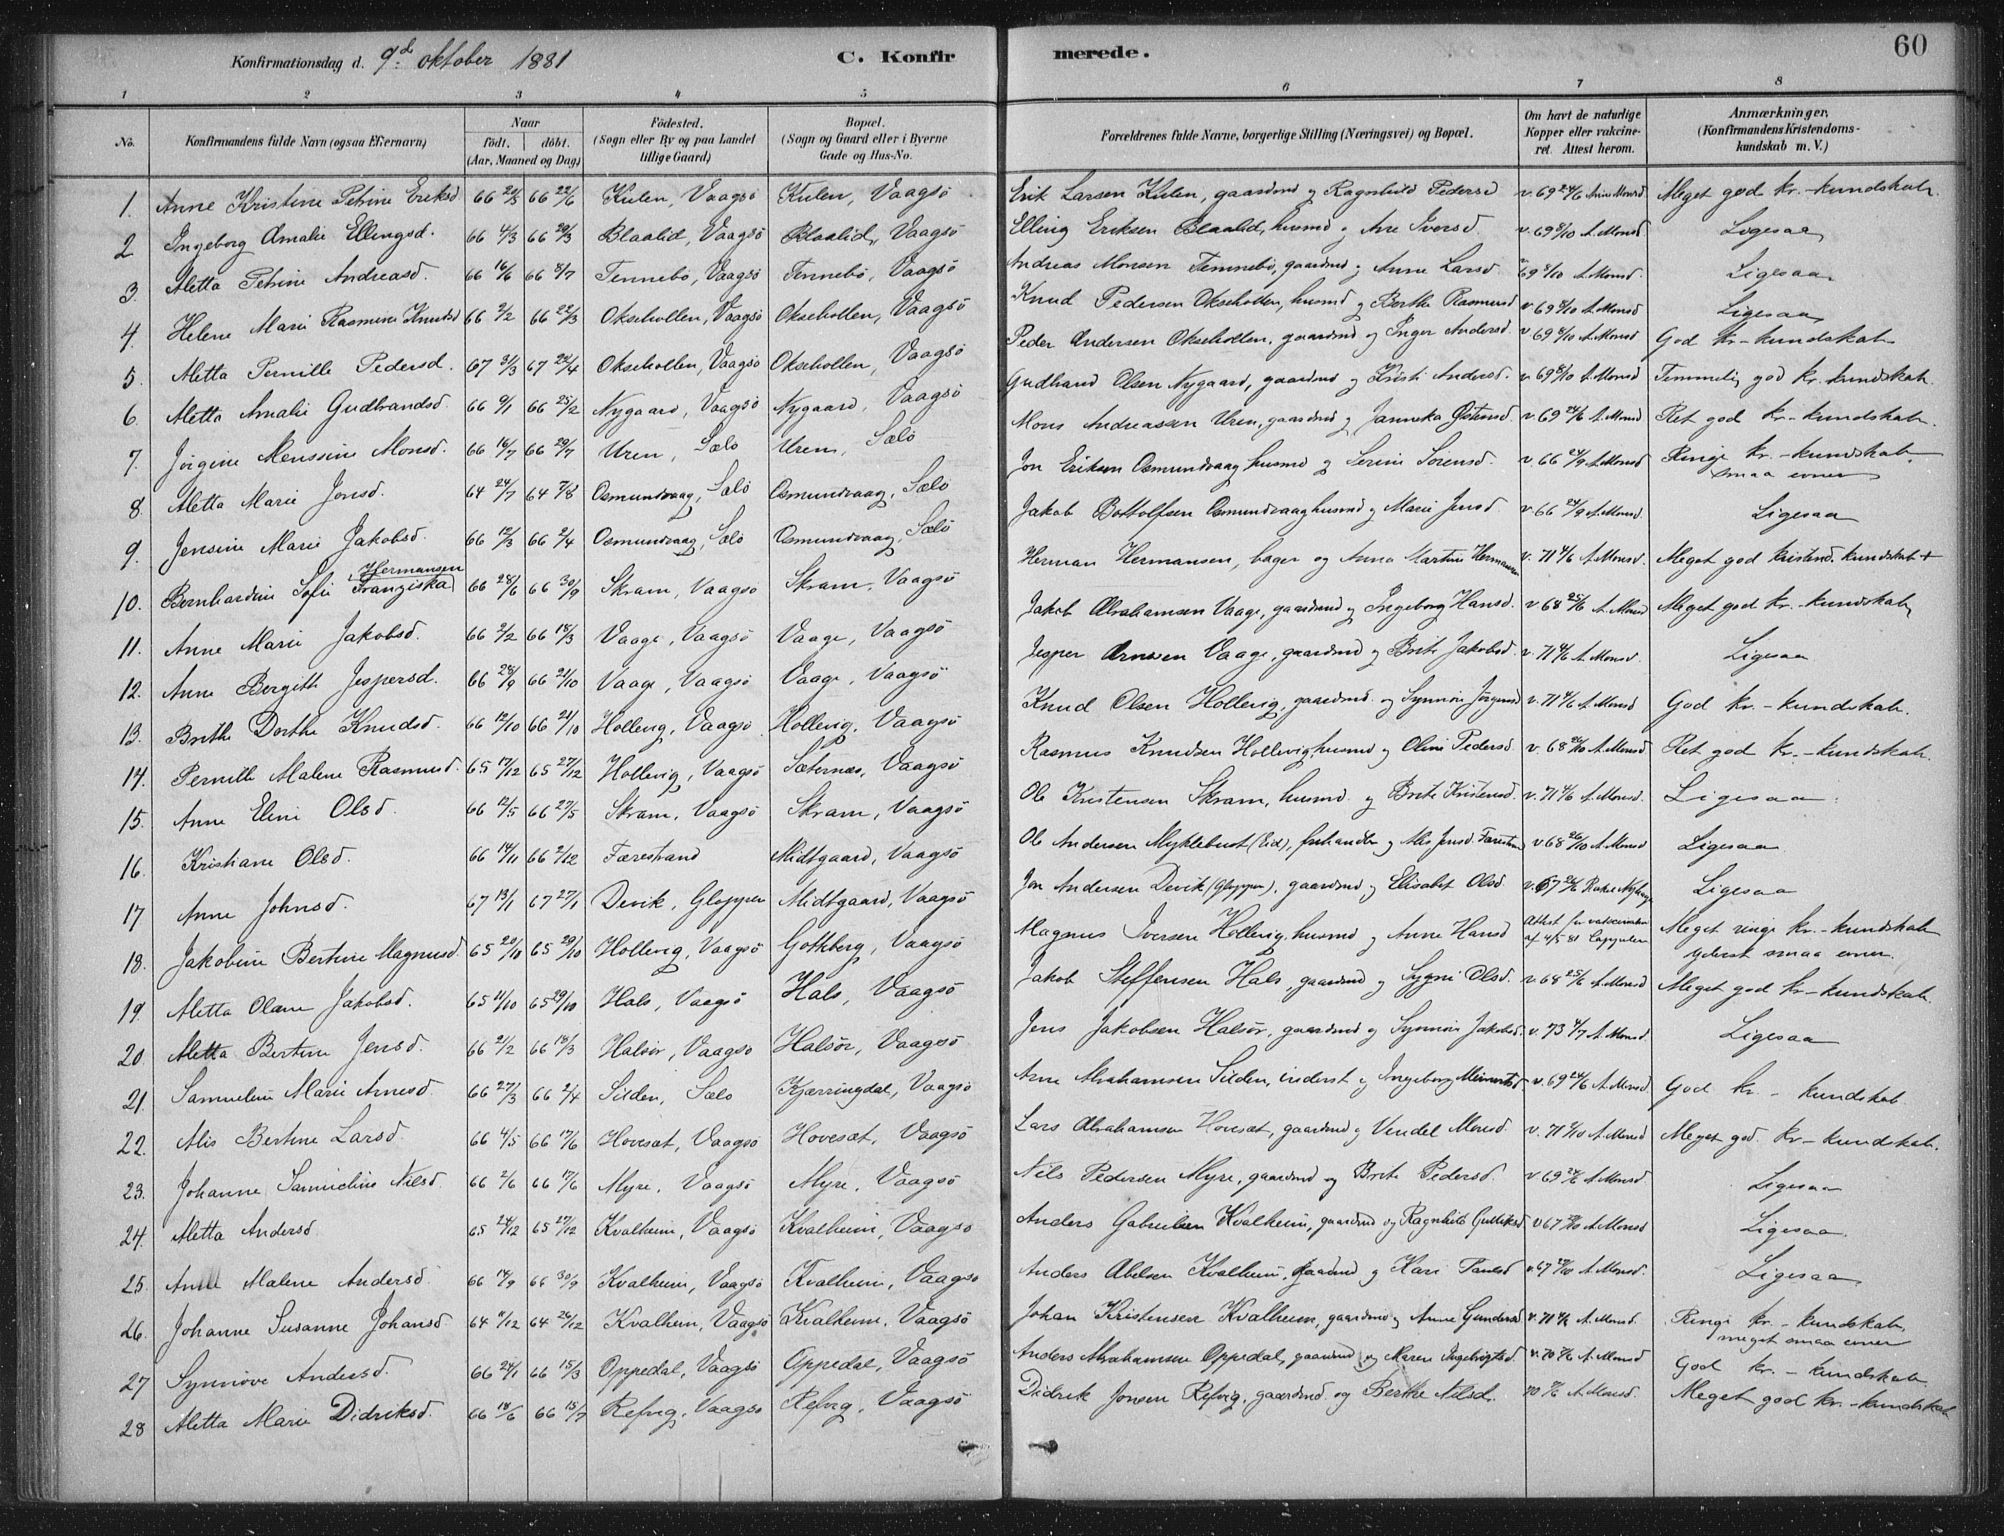 Konfirmationsdag d. 9d oktober 1881 C. Konfirmerede. 60
1 2 3 4 5 6 7 8
No. Konfirmandens fulde Navn (ogsaa Efternavn) Naar født. døbt. (Aar, Maaned og Dag) Fødested. (Sogn eller By og paa Landet tillige Gaard) Bopæl. (Sogn og Gaard eller i Byerne Gade og Hus-No. Forældrenes fulde Navne, borgerlige Stilling (Næringsvei) og Bopæl. Om havt de naturlige Kopper eller vakcineret. Attest herom. Anmærkninger. (Konfirmandens Kristendomskundskab m. V.)
1. Anne Kristine Petrine Eriksd 66 20/5 66 22/6 Kulen, Vaagsö Kulen, Vaagsö Erik Larsen Kulen, gaardmd og Ragnhild Pedersd v. 69 24/6 Meget god kr.-kundskab.
2 Ingeborg Amalie Ellingsd. 66 4/3 66 29/3 Blaalid, Vaagsö Blaalid, Vaagsö Elling Eriksen Blaalid, husmd og Ane Iversd. v. 69 8/10 A. Monsd. Ligesaa
3. Aletta Petrine Andreasd. 66 16/6 66 8/7 Tennebö, Vaagsö Tennebö, Vaagsö Andreas Monsen Tennebö, gaardmd og Anne Larsd. v 69 8/10 A. Monsd. Ligesaa
4. Helene Marie Rasmine Knudsd 66 2/2 66 22/3 Oksehollen, Vaagsö Oksehollen, Vaagsö Knud Pedersen Oksehollen, husmd og Berthe Rasmusd v 69 8/10 A. Monsd Ligesaa
5. Aletta Pernille Pedersd. 67 31/3 67 24/4 Oksehollen, Vaagsö Oksehollen, Vaagsö Peder Andersen Oksehollen, gaardmd og Inger Andersd. v 69 8/10 A. Monsd God kr-kundskab
6. Aletta Amalie Gudbrandsd. 66 9/1 66 25/2 Nygaard, Vaagsö Nygaard, Vaagsö Gudbrand Olsen Nygaard, gaardmd og Kristi Andersd. v. 69 8/10 A. Monsd Temmelig god kr. kundskab.
7. Jörgine Monssine Monsd. 66 16/7 66 29/7 Uren, Sælö Uren, Sælö Mons Andreassen Uren, gaardmd og Janneka Östensd v. 69 24/6 A. Monsd Ret god kr-kundskab.
8. Aletta Marie Jonsd. 64 24/7 64 7/8 Osmundvaag, Sælö Osmundvaag, Sælö Jon Eriksen Osmundvaag husmd og Serine Sörensd. v. 66 24/9 A. Monsd Ringe kr.-kundskab. smaa evner
9. Jensine Marie Jakobsd. 66 12/3 66 2/4 Osmundvaag, Sælö Osmundvaag, Sælö Jakob Bottolfsen Osmundvaag husmd og Marie Jensd. v. 66 24/9 A. Monsd. Ligesaa
10. Bernhardine Sofie Franziska Hermansen 66 28/6 66 30/9 Skram, Vaagsö Skram, Vaagsö Herman Hermansen, bager og Anna Martine Hermansen v. 71 4/6 A. Monsd. Meget god kristend. kundskab +
11. Anne Marie Jakobsd. 66 2/2 66 18/3 Vaage, Vaagsö Vaage, Vaagsö Jakob Abrahamsen Vaage, gaardmd og Ingeborg Hansd. v. 68 25/6 A. Monsd Meget god kr.-kundskab
12. Anne Bergitte Jespersd. 66 28/9 66 21/10 Vaage, Vaagsö Vaage, Vaagsö Jesper Arnesen Vaage, gaardmd og Brite Jakobsd. v. 71 4/6 A. Monsd. Ligesaa
13. Brithe Dorthe Knudsd. 66 12/10 66 21/10 Hollevig, Vaagsö Hollevig, Vaagsö Knud Olsen Hollevig, gaardmd. og Synnöve Jörgensd v. 71 4/6 A. Monsd God kr.-kundskab.
14. Pernille Malene Rasmusd. 65 17/12 65 27/12 Hollevig, Vaagsö Sæternæs, Vaagsö Rasmus Knudsen Hollevig husmd og Oline Pedersd. v. 68 26/10 A. Monsd Ret god kr.-kundskab.
15. Anne Eline Olsd. 66 12/5 66 27/5 Skram, Vaagsö Skram, Vaagsö Ole Kristensen Skram, husmd. og Brite Kristensd. v. 71 4/6 A. Monsd. Ligesaa.
16. Kristiane Olsd. 66 14/11 66 2/12 Færestrand Midtgaard, Vaagsö Ole Andersen Myklebust (Eid), og Alis Jensd. v 68 26/10 A. Monsd Ligesaa.
17 Anne Johnsd. 67 13/1 67 27/1 Devik, Gloppen Midtgaard, Vaagsö Jon Andersen Devik (Gloppen), gaardmd og Elisabet Olsd v. 67 Ligesaa
18. Jakobine Bertine Magnusd. 65 20/10 65 29/10 Hollevig, Vaagsö Gotheberg, Vaagsö Magnus Iversen Hollevig, husmd og Anne Hansd Attest for vakcination af 4/5 81 Meget ringe kr.-kundskab yderst smaa evner.
19. Aletta Oline Jakobsd. 65 11/10 65 29/10 Hals, Vaagsö Hals, Vaagsö Jakob Steffensen Hals, gaardmd og Sygni Olsd. v. 68 25/6 A. Monsd Meget god kr-kundskab.
20. Aletta Bertine Jensd. 66 21/2 66 18/3 Halsör, Vaagsö Halsör, Vaagsö Jens Jakobsen Halsör, gaardmd og Synnöve Jakobsd. v. 73 4/7 A. Monsd. Ligesaa
21. Samueline Marie Arnesd 66 27/3 66 2/4 Silden, Sælö Kjærringdal, Vaagsö Arne Abrahamsen Silden, inderst og Ingeborg v. 69 24/6 A. Monsd God kr.-kundskab.
22. Alis Bertine Larsd. 66 4/5 66 17/6 Hovesæt, Vaagsö Hovesæt, Vaagsö Lars Abrahamsen Hovesæt, gaardmd og Vendel Monsd. v. 71 A. Monsd. Meget god. kr-kundskab.
23. Johanne Samueline Nilsd 66 2/6 66 17/6 Myre, Vaagsö Myre, Vaagsö Nils Pedersen Myre, gaardmd og Brite Pedersd. v 69 24/6 A. Monsd Ligesaa
24. Aletta Andersd 65 24/12 65 27/12 Kvalheim, Vaagsö Kvalheim, Vaagsö Anders Gabrielsen Kvalheim, gaardmd og Ragnhild Gulliksd v 67 A. Monsd Ligesaa.
25. Anne Malene Andersd. 66 14/9 66 30/9 Kvalheim, Vaagsö Kvalheim, Vaagsö Anders Abelsen Kvalheim, gaardmd og Kari Paulsd v. 67 A. Monsd. Ligesaa
26. Johanne Susanne Johansd 64 11/12 64 26/12 Kvalheim, Vaagsö Kvalheim, Vaagsö Johan Kristensen Kvalheim, gaardmd og Anne Gundersd. v. 71 4/6 A. Monsd. Ringe kr.-kundskab, meget smaa evner
27 Synnöve Andersd. 66 24/1 66 15/3 Oppedal, Vaagsö Oppedal, Vaagsö Anders Abrahamsen Oppedal, gaardmd og Maren Ingebrigtsd. v. 70 A. Monsd God kr.-kundskab.
28 Aletta Marie Didriksd. 66 18/6 66 15/7 Refvig, Vaagsö Refvig, Vaagsö Didrik Jonsen Refvig, gaardmd. og Berthe Nilsd. 70 A. Monsd. Meget god kr.-kundskab